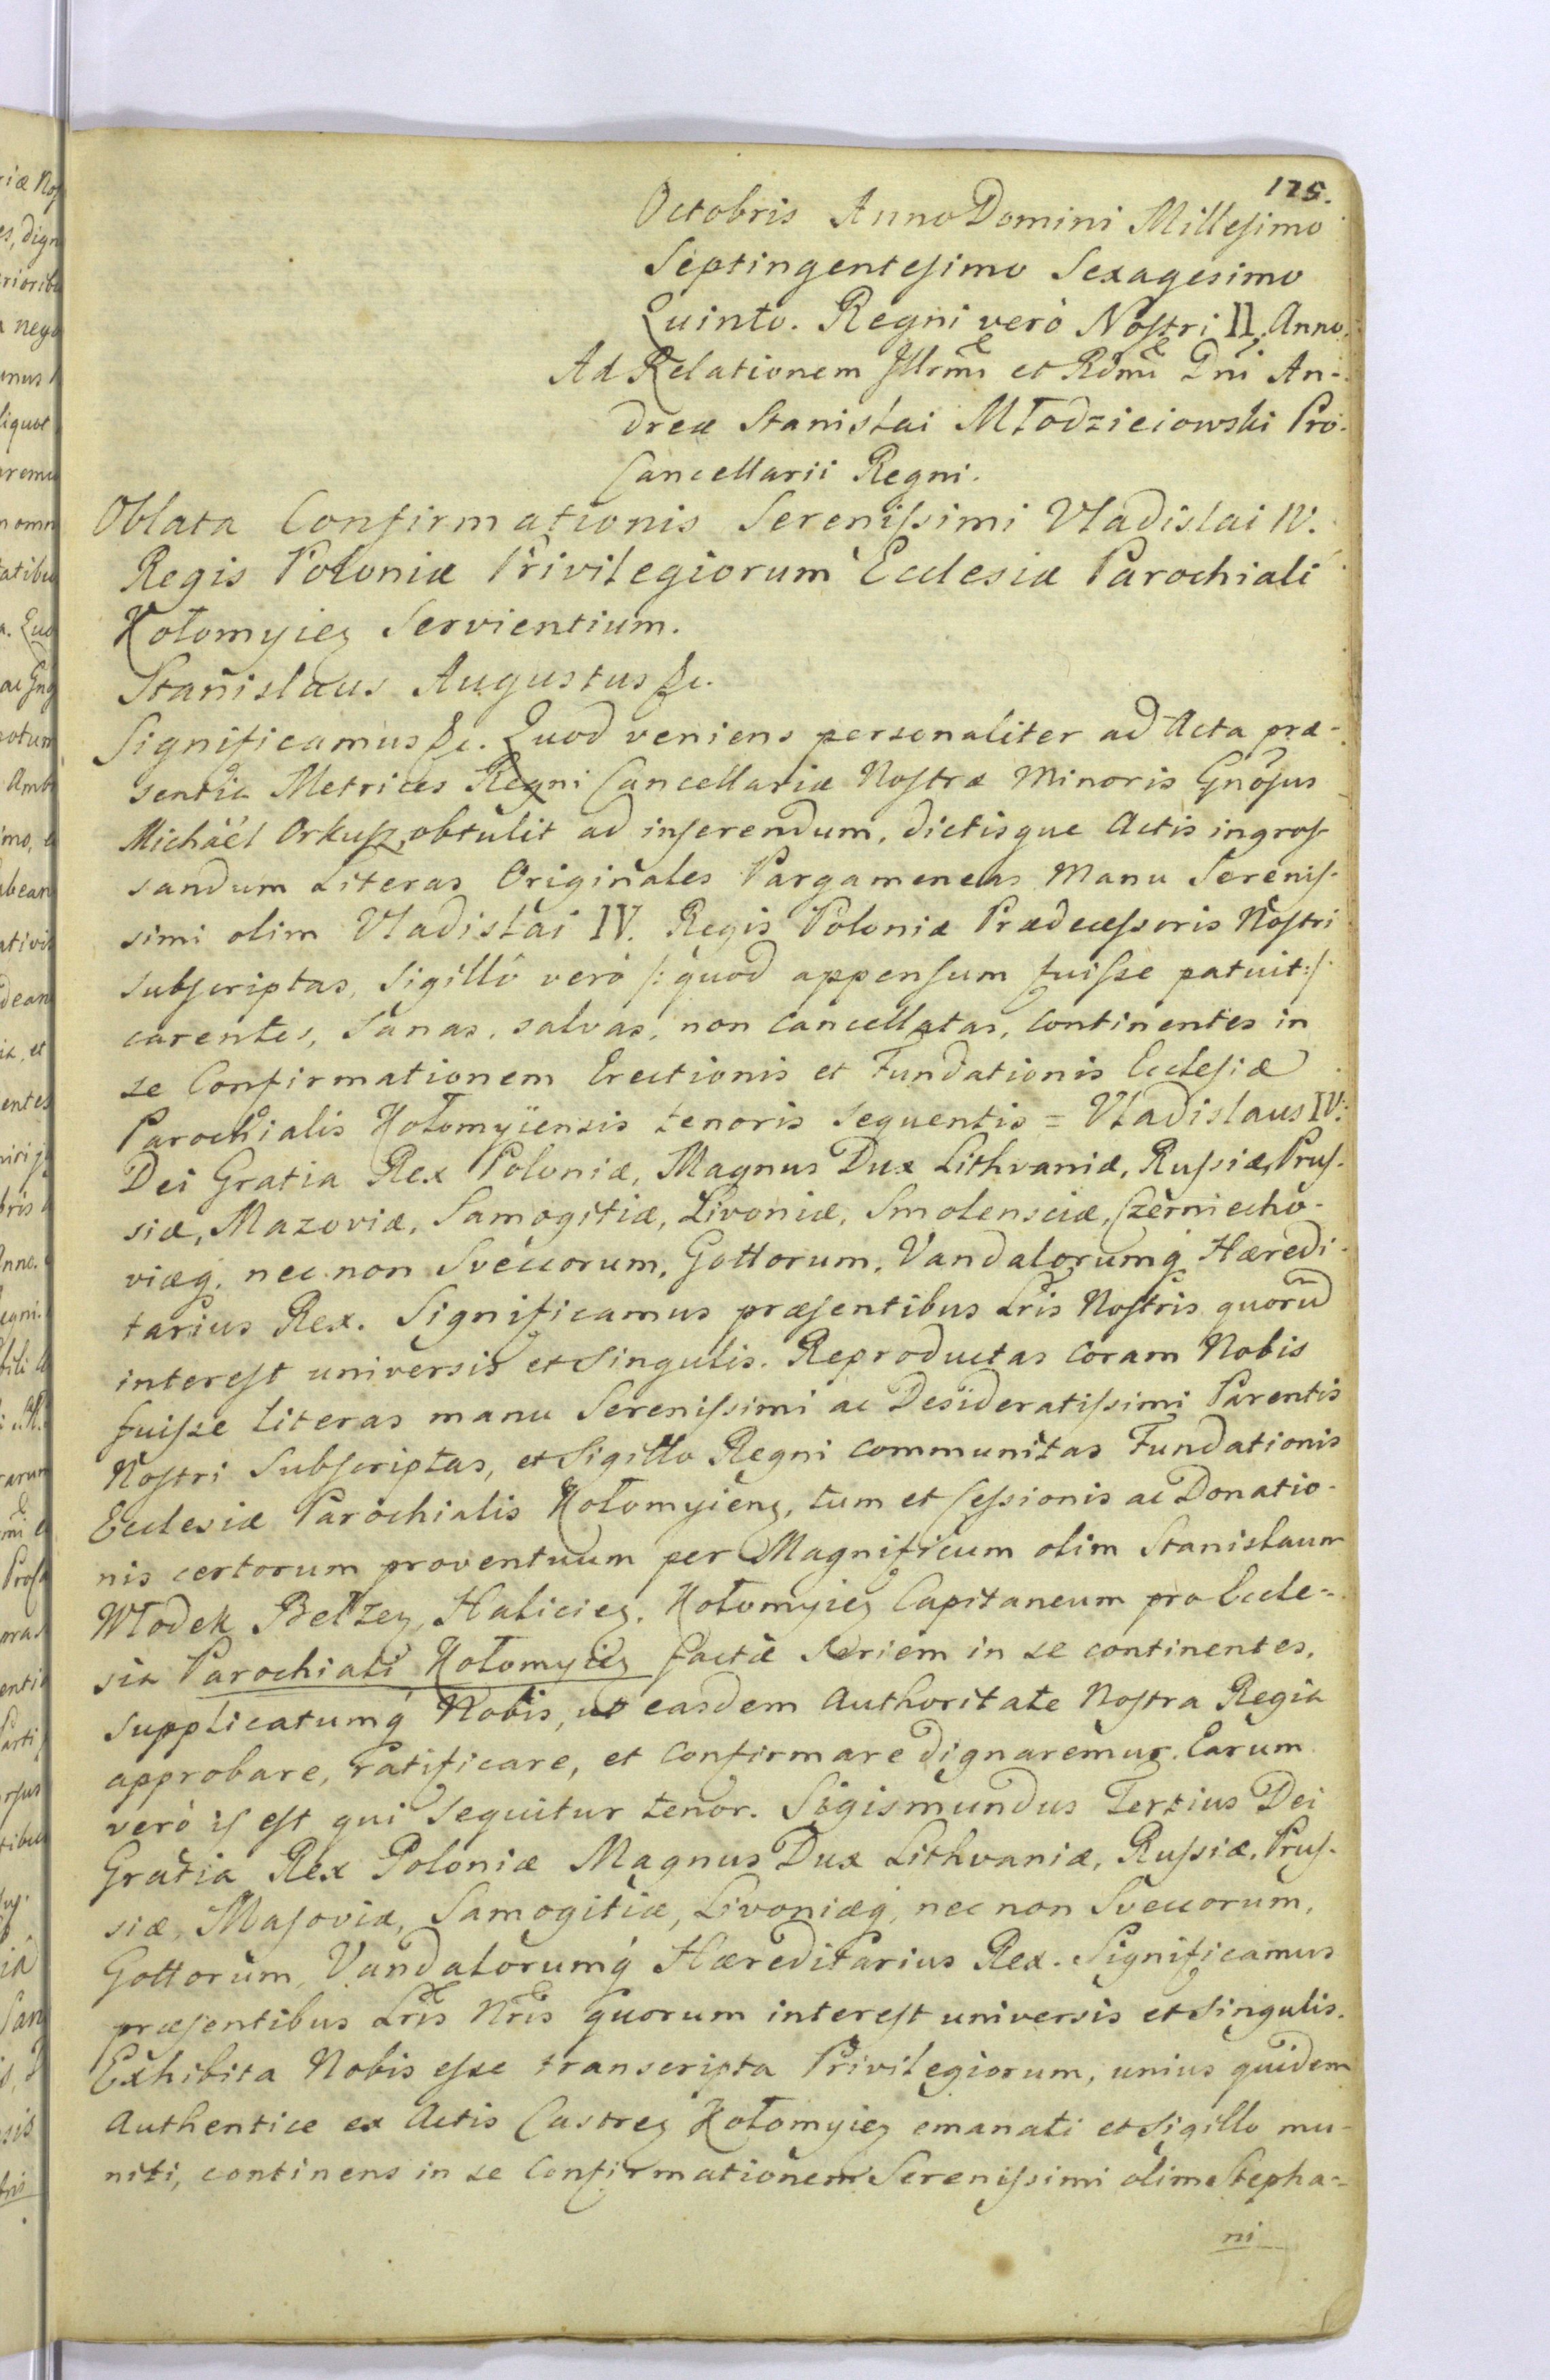 175.
Octobris Anno Domini Milleſimo
Septingenteſimo Sexagesimo
Quinto. Regni verò Noſtri II. Anno.
Ad Relationem Jllrmi et Rdmi Dni An-
dreæ Stanislai Młodzieiowski Pro-
Cancellarii Regni.
Oblata Confirmationis Sereniſsimi Vladislai IV.
Regis Poloniæ Privilegiorum Ecclesiæ Parochiali
Kołomyieƺ Servientium.
Stanislaus Augustus &c.
Significamus &c. Quod veniens personaliter ad Acta præ-
sentia Metrices Regni Cancellariæ Noſtræ Minoris Gnosus
Michäel Orkuſz, obtulit ad inſerendum, dictisque Actis ingroſ-
sandum Literas Originales Pargameneas Manu Sereniſ-
simi olim Vladislai IV. Regis Poloniæ Prædeceſsoris Noſtri
subſcriptas, Sigillô verò /: quod appenſum fuiſse patuit :/
carentes, Sanas, salvas, non Cancellatas, Continentes in
se Confirmationem Erectionis et Fundationis Eccleſiæ
Parochialis Kołomyiensis tenoris sequentis = Vladislaus IV:
Dei Gratia Rex Poloniæ, Magnus Dux Lithvaniæ, Ruſsiæ, Pruſ-
siæ, Mazoviæ, Samogitiæ, Livoniæ, Smolensciæ, Czerniecho-
viæq́, nec non Sveccorum, Gottorum, Vandalorumq́ Hæredi-
tarius Rex. Significamus præſentibus Lris Noſtris quorũ
intereſt universis et Singulis. Reproductas Coram Nobis
fuiſse literas manu Sereniſsimi ac Desideratiſsimi Parentis
Noſtri Subſcriptas, et Sigillo Regni communitas Fundationis
Ecclesiæ Parochialis Kołomyienƺ, tum et Ceſsionis ac Donatio-
nis certorum proventuum per Magnificum olim Stanislaum
Włodek Bełzeƺ, Halicieƺ, Kołomyieƺ Capitaneum pro Eccle-
sia Parochiali Kołomyieƺ factæ Seriem in se continentes,
Supplicatumq́ Nobis, ut easdem Authoritate Noſtra Regia
approbare, ratificare, et Confirmare dignaremur. Earum
verò iſ eſt qui Sequitur tenor. Sigismundus Tertius Dei
Gratia Rex Poloniæ Magnus Dux Lithvaniæ, Ruſsiæ, Pruſ-
siæ, Maſoviæ, Samogitiæ, Livoniæq́, nec non Sveccorum,
Gottorum, Vandalorumq́ Hæreditarius Rex. Significamus
præſentibus Lris Nris quorum intereſt universis et Singulis.
Exhibita Nobis eſse transcripta Privilegiorum, unius quidem
Authentice ex Actis Castreƺ Kołomyieƺ emanati et Sigillo mu-
niti, continens in se Confirmationem Sereniſsimi olim Stepha-
ni